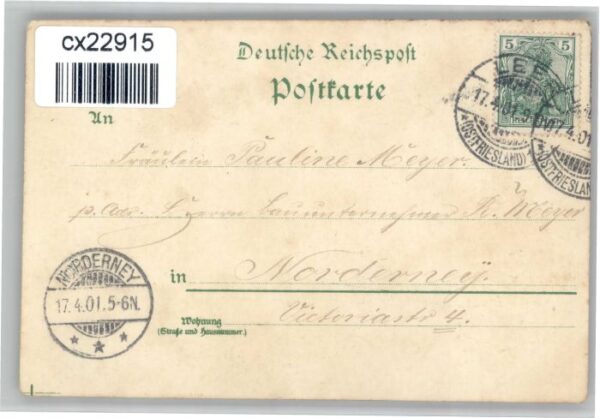 cx22915
Deutsche Reichspost
Postkarte
5
LEER
17.4.01.
(OSTFRIESLAND)
17.4.01.
(OSTFRIESLAND)
An
Fräulein Pauline Meyer
p. adr. Herrn Bauunternehmer R. Meyer
in Norderney.
Victoriastr 4.
Wohnung
(Straße und Hausnummer.)
NORDERNEY
17.4.01.5-6N.